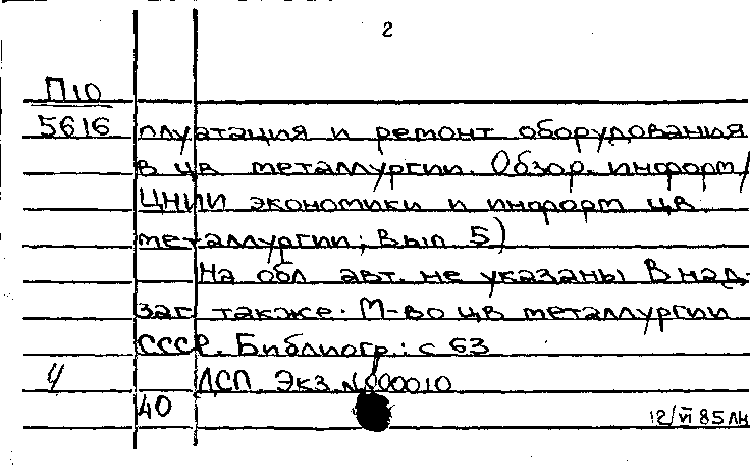 2
П10
5616
плуатация и ремонт оборудования
в цв металлургии. Обзор. информ/
ЦНИИ экономики и информ цв.
металлургии; Вып 5)
На обл авт. не указаны В над-
заг также: М-во цв металлургии
СССР. Библиогр.: с 63
ДСП Экз № 000010
40
12/VI 85 ЛН